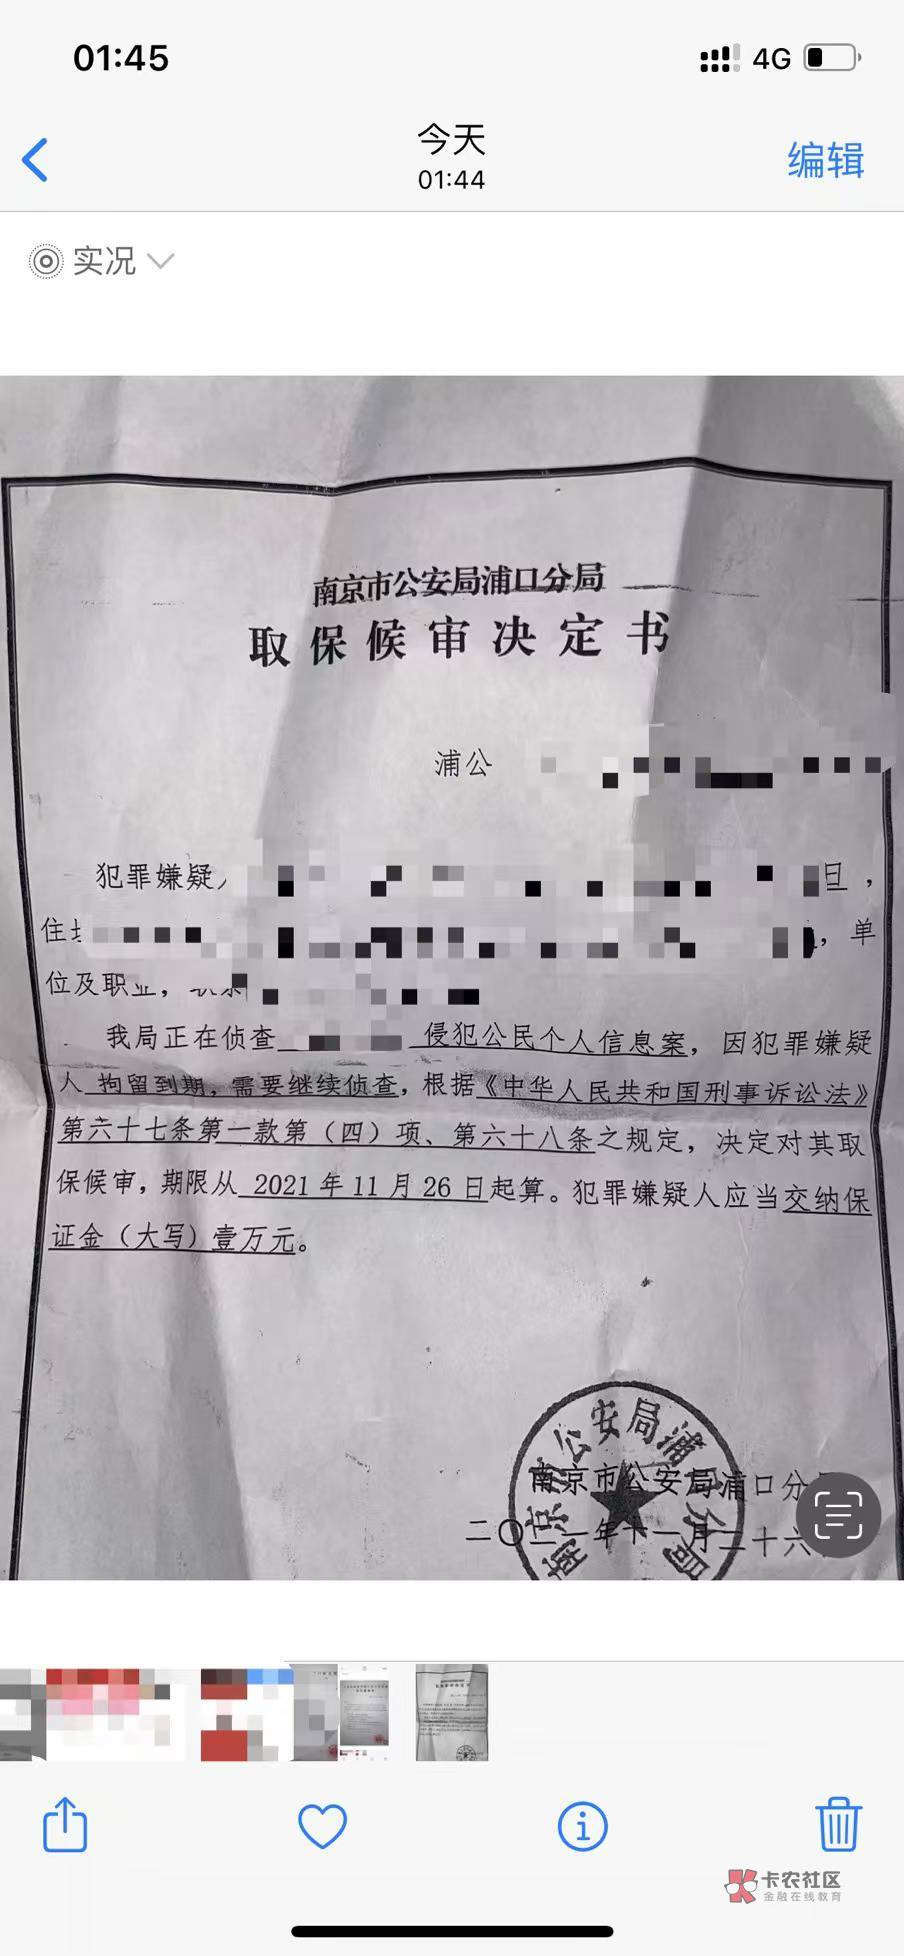 01:45
4G
今天
01:44
编辑
实况
南京市公安局浦口分局
取保候审决定书
浦公
犯罪嫌疑
日，
住
，单
位及职业，
我局正在侦查 侵犯公民个人信息案，因犯罪嫌疑
人拘留到期，需要继续侦查，根据《中华人民共和国刑事诉讼法》
第六十七条第一款第（四）项、第六十八条之规定，决定对其取
保候审，期限从 2021 年 11 月 26 日起算。犯罪嫌疑人应当交纳保
证金（大写）壹万元。
南京市公安局浦口分
二〇二一年十一月二十六
卡农社区
金融在线教育